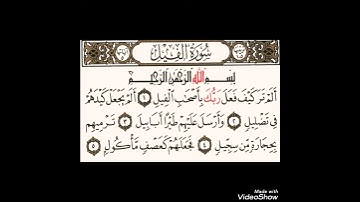 سُورَةُ الْفِيلِ
بِسْمِ اللَّهِ الرَّحْمَٰنِ الرَّحِيمِ
أَلَمْ تَرَ كَيْفَ فَعَلَ رَبُّكَ بِأَصْحَابِ الْفِيلِ ١ أَلَمْ يَجْعَلْ كَيْدَهُمْ
فِي تَضْلِيلٍ ٢ وَأَرْسَلَ عَلَيْهِمْ طَيْرًا أَبَابِيلَ ٣ تَرْمِيهِمْ
بِحِجَارَةٍ مِنْ سِجِّيلٍ ٤ فَجَعَلَهُمْ كَعَصْفٍ مَأْكُولٍ ٥
Made with
VideoShow